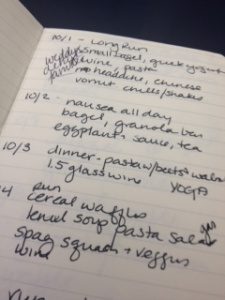 10/1 - Long Run
small bagel, greek yogurt
wine, pasta
headache, chinese
vomit chills/shakes
10/2 - nausea all day
bagel, granola bar
eggplant + sauce, tea
10/3 dinner - pasta w/ beets + walnuts
1.5 glass wine YOGA
run
cereal waffles
lentil soup pasta salad
spag squash + veggies
wine